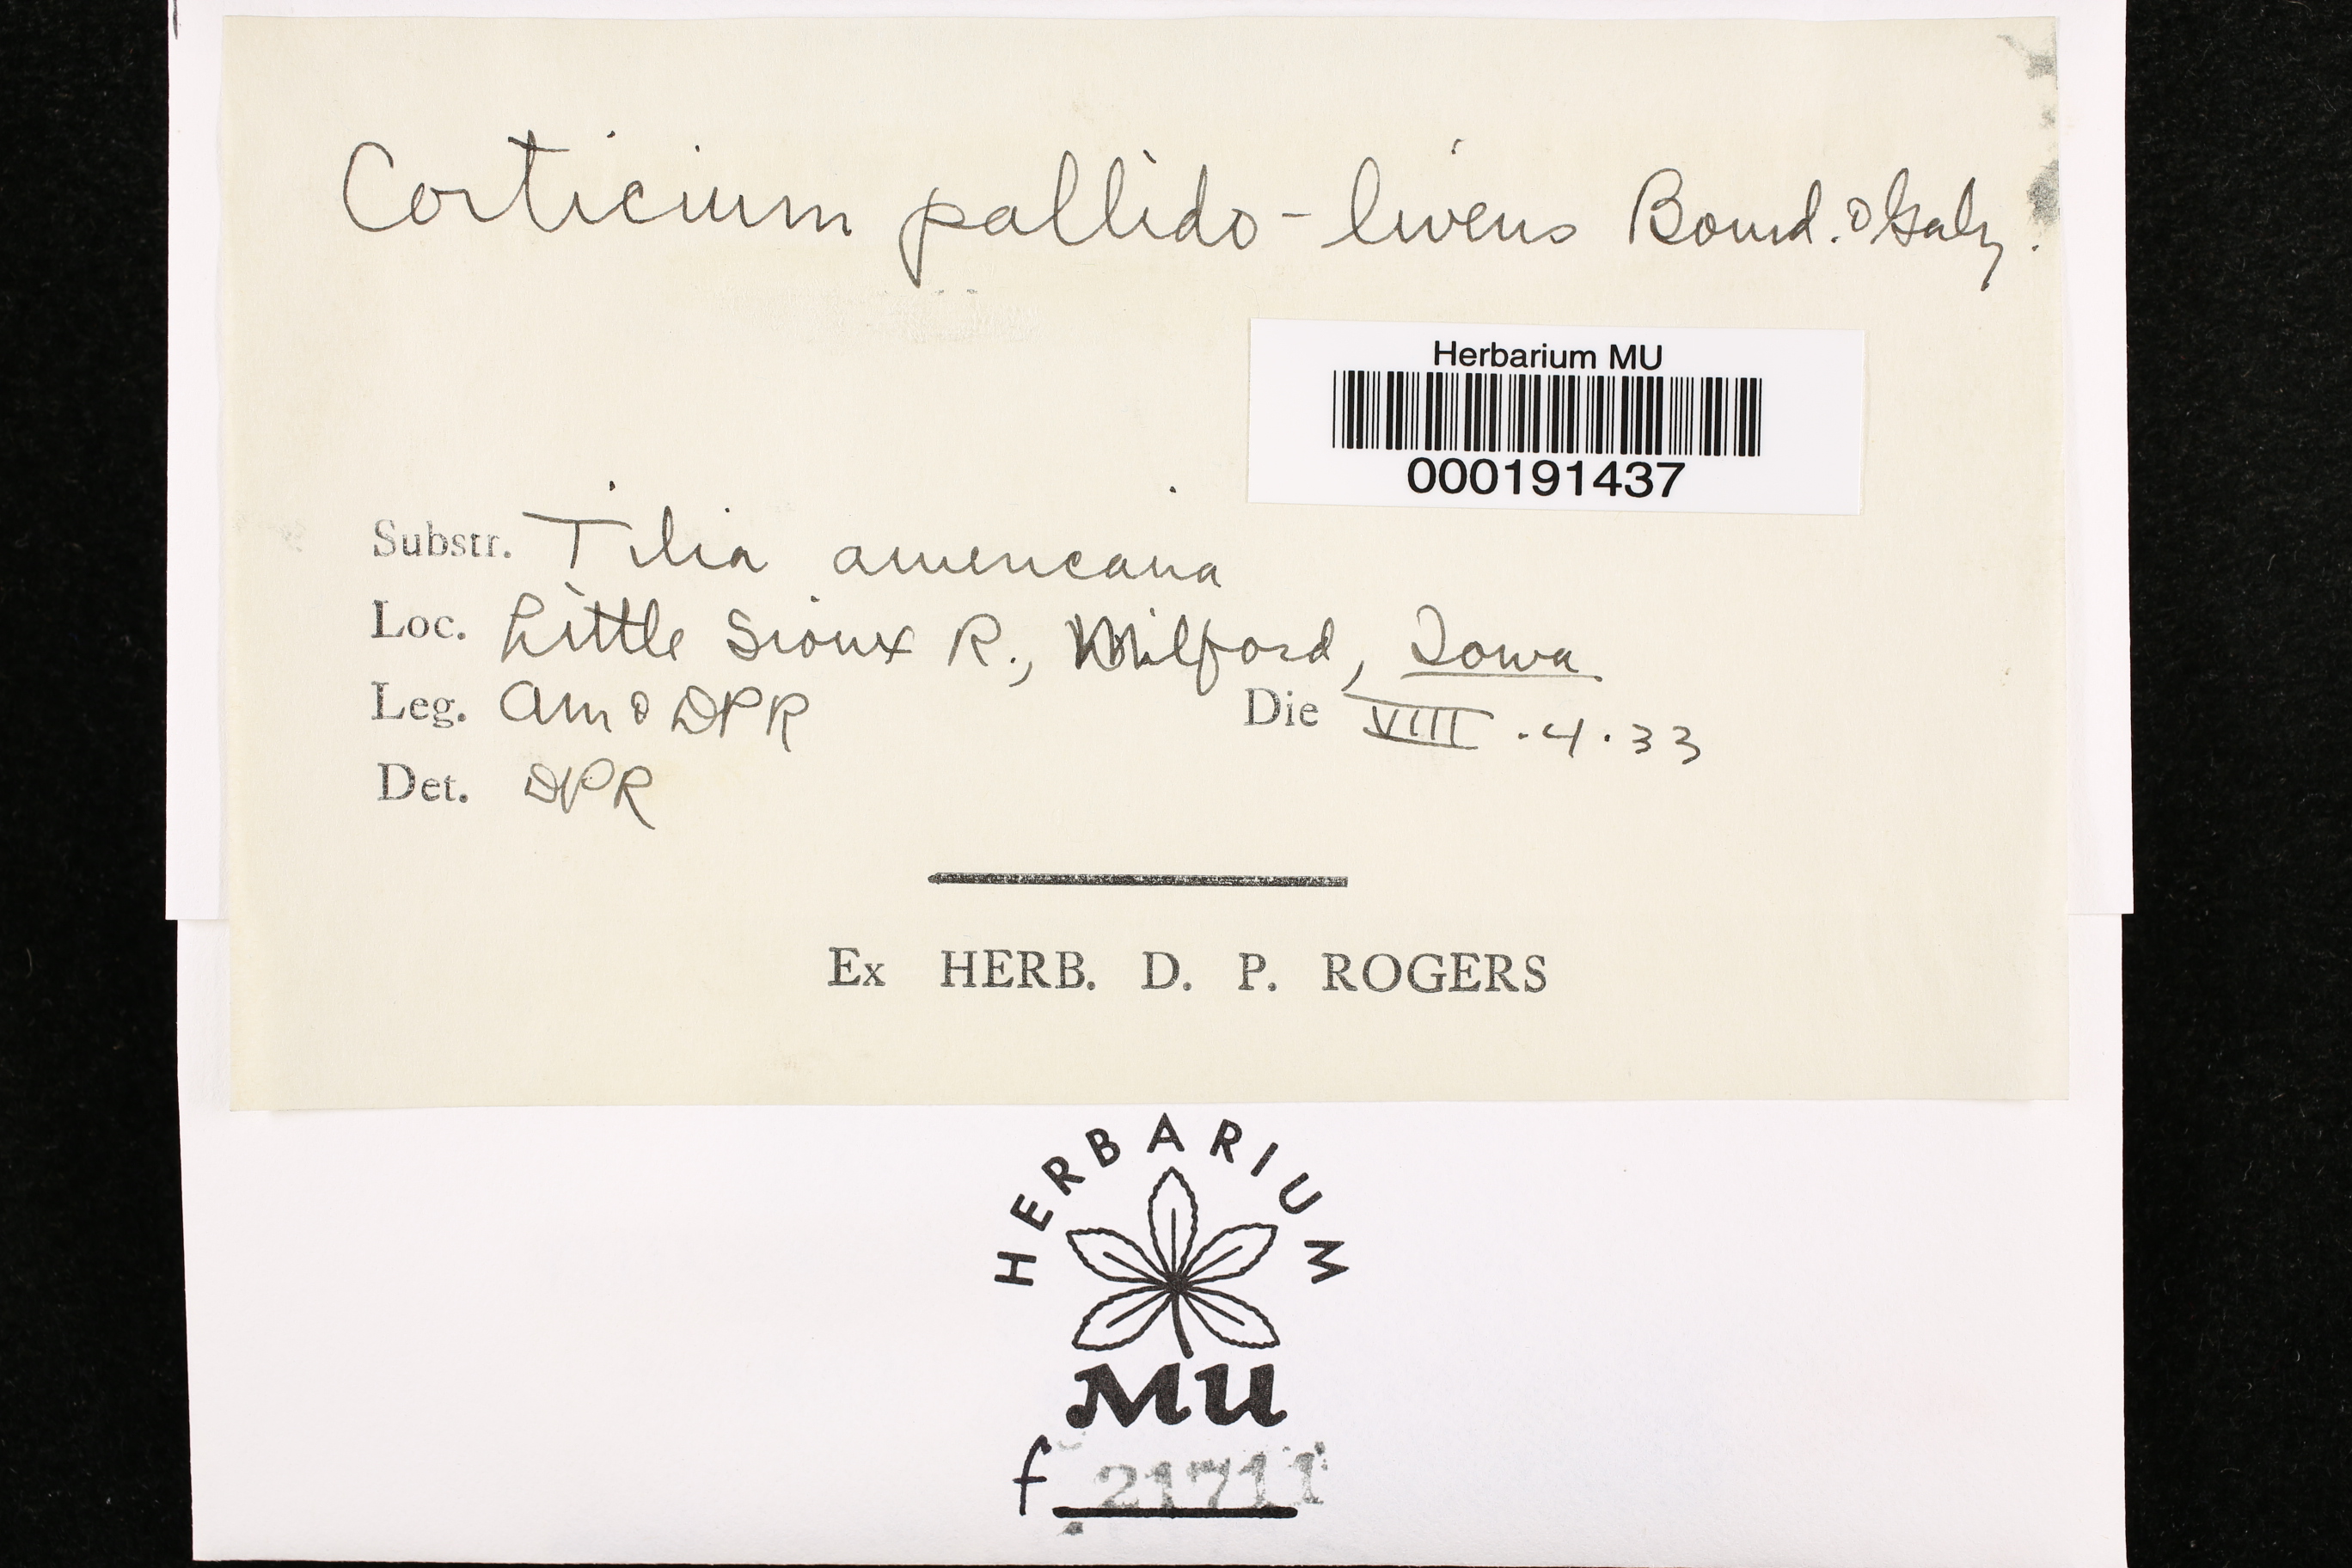 Corticium pallido-livens Bourd. & Galz.
Herbarium MU
000191437
Substr. Tilia americana
Loc. Little Sioux R., Milford, Iowa
Leg. am & DPR Die VIII.4.33
Det. DPR
Ex HERB. D. P. ROGERS
HERBARIUM
MU
f 21711